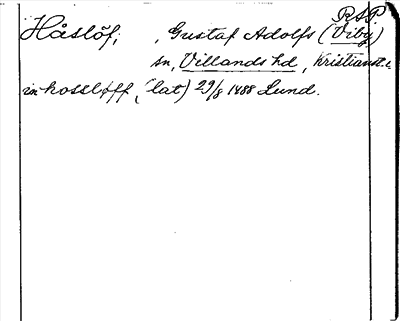 RAP.
Håslöf, , Gustaf Adolfs (Viby)
sn, Villands hd, Kristianst. l.
in hossløff, (lat) 29/8 1488 Lund.